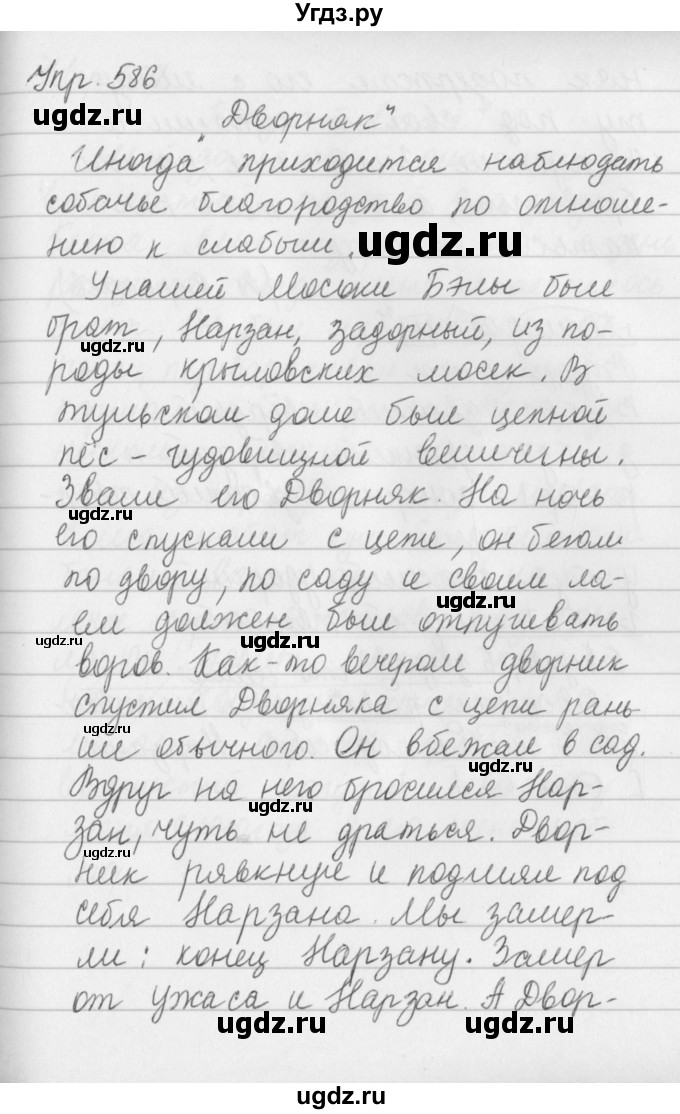 Угдз.ру
Упр. 586
ugdz.ru
"Дворняк"
Иногда приходится наблюдать
собачье благородство по отноше-
нию к слабым.
ugdz.ru
У нашей Мосоки Бэлы был
брат, Нарзан, задорный, из по-
ugdz.ru
роды крыловских мосек. В
тульском доме был цепной
пёс – чудовищной величины.
Звали его Дворняк. На ночь
ugdz.ru
его спускали с цепи, он бегал
по двору, по саду и своим ла-
ugdz.ru
ем должен был отпугивать
ugdz.ru ugdz.ru
воров. Как-то вечером дворник
спустил Дворняка с цепи рань
ugdz.ru
ше обычного. Он вбежал в сад.
ugdz.ru
Вдруг на него бросился Нар-
ugdz.ru
зан, чуть не драться. Двор-
ugdz.ru
ник рявкнул и подмял под
себя Нарзана. Мы замер-
ли: конец Нарзану. Замер
от ужаса и Нарзан. А Двор-
ugdz.ru ugdz.ru
ugdz.ru